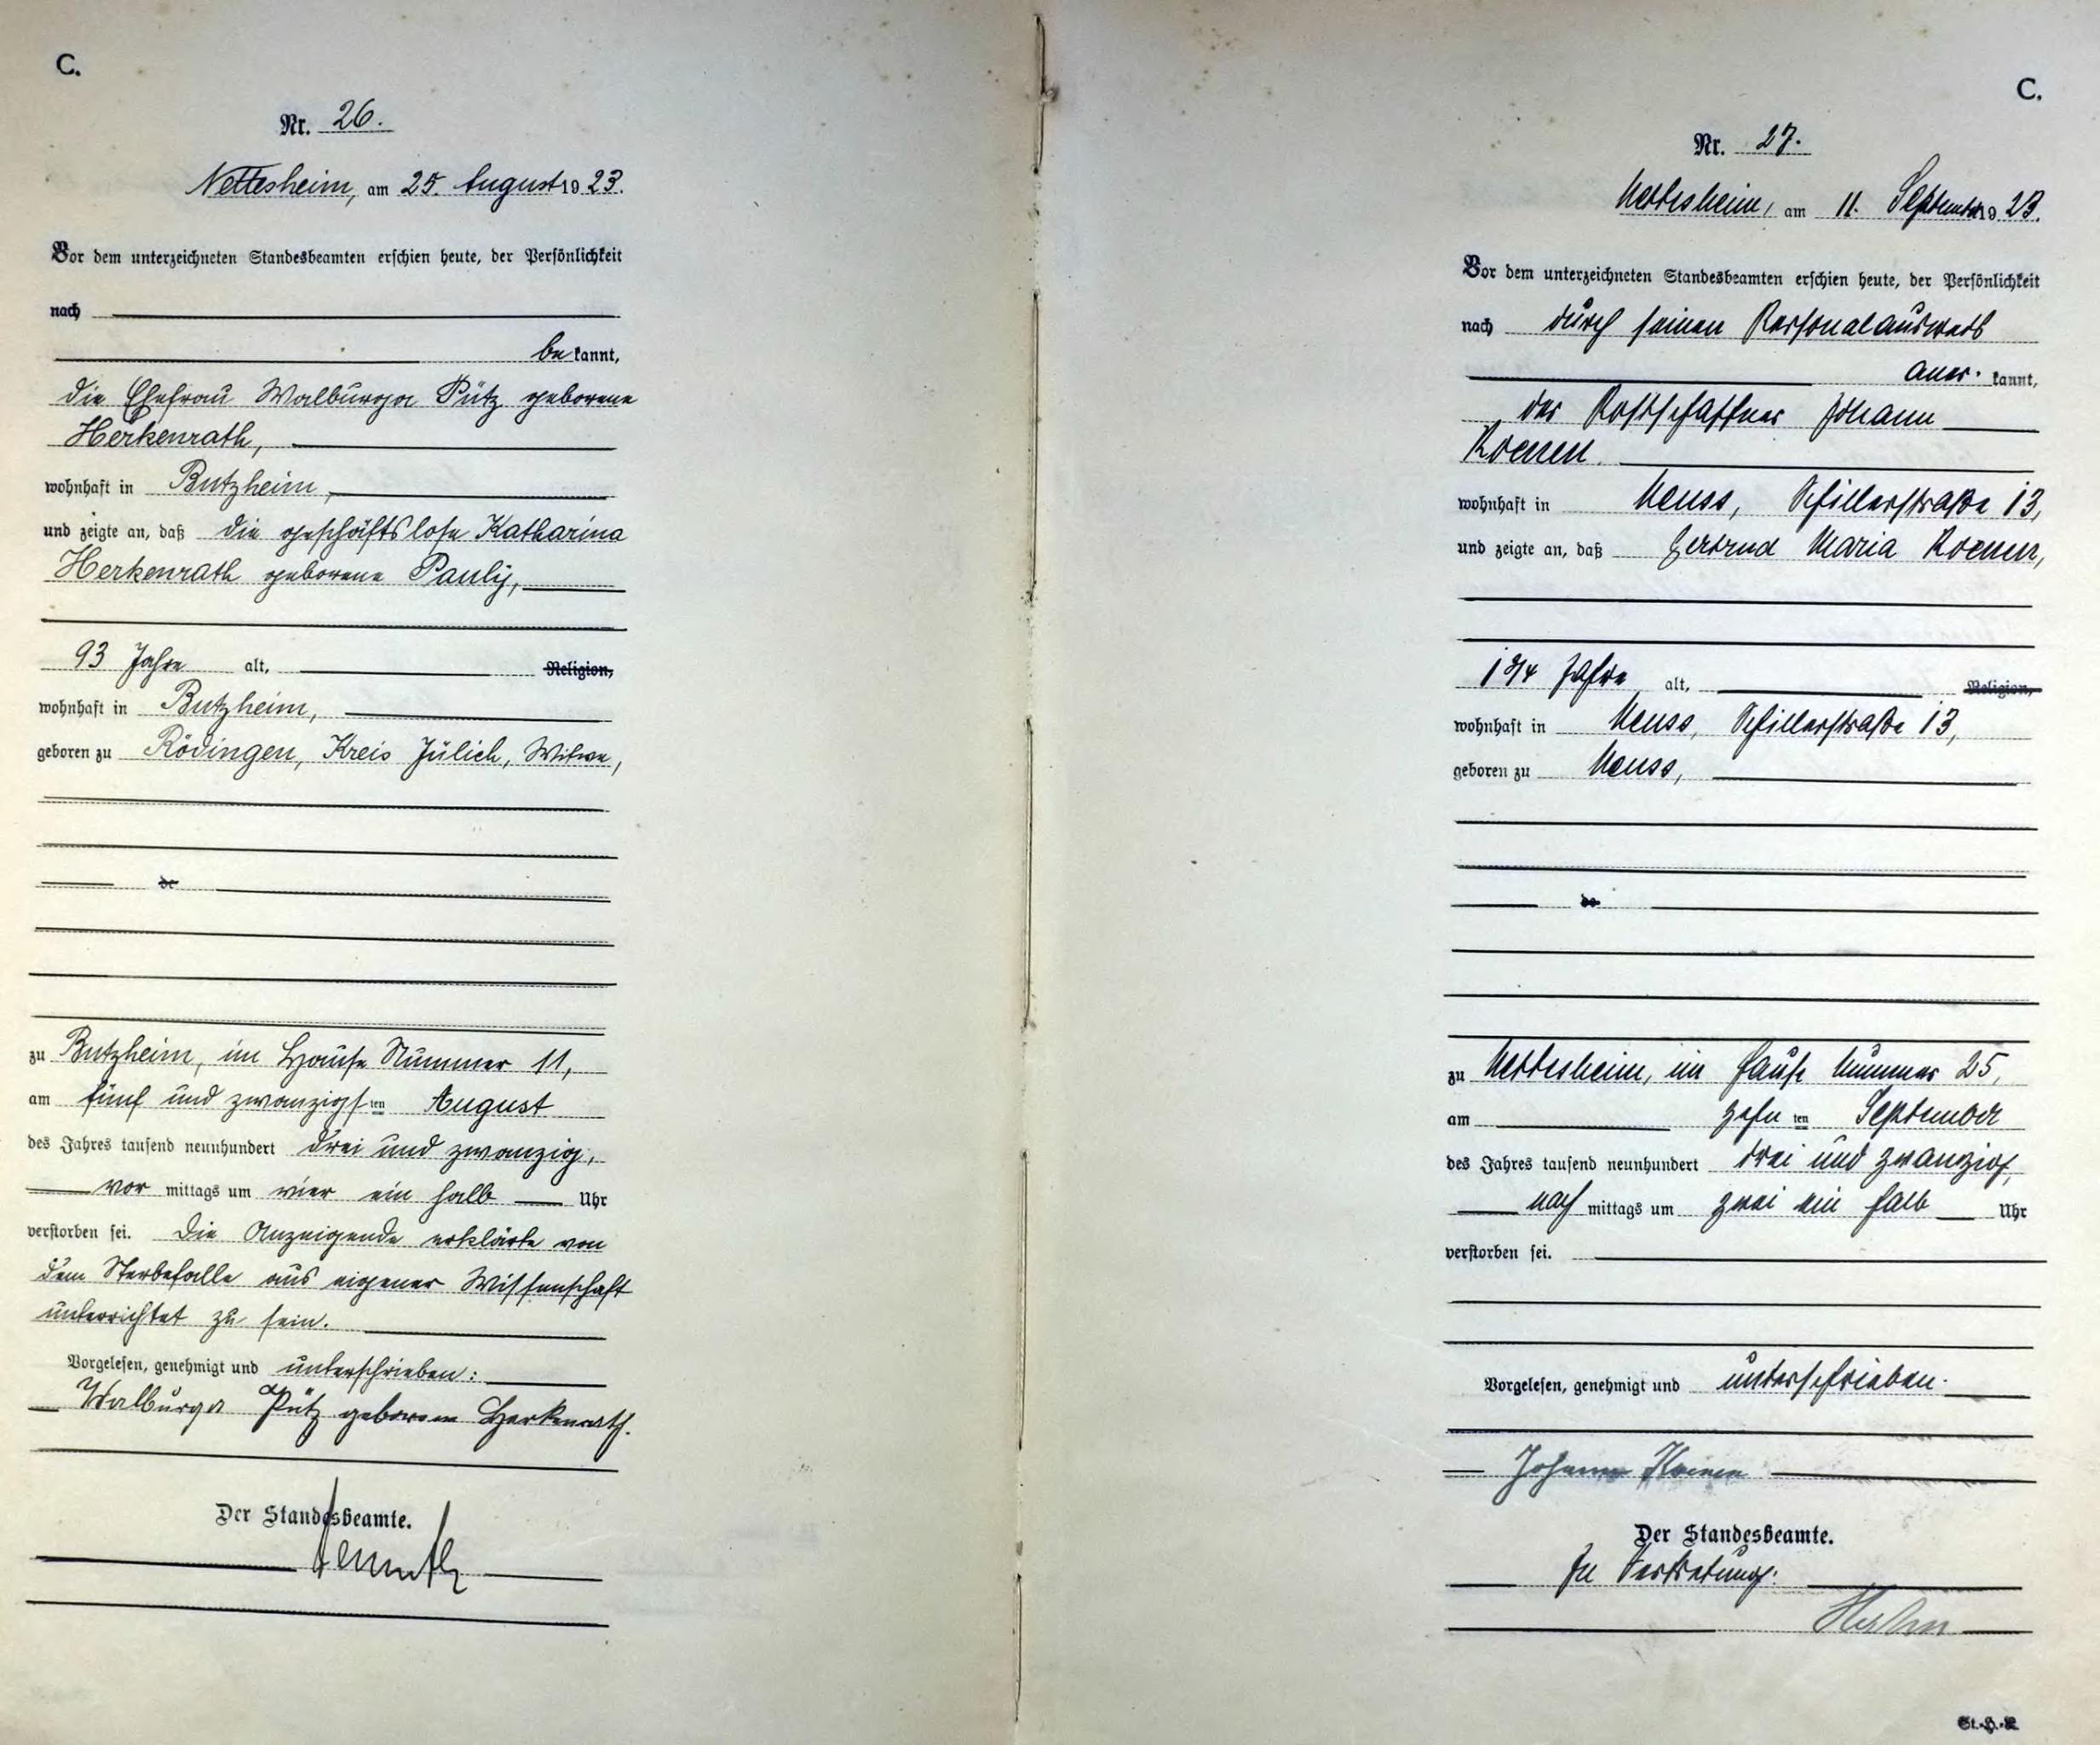 C.
Nr. 26.
Nettesheim, am 25. August 1923.
Vor dem unterzeichneten Standesbeamten erschien heute, der Persönlichkeit
nach
be kannt,
die Ehefrau Walburga Pütz geborene
Herkenrath,
wohnhaft in Butzheim,
und zeigte an, daß die geschäftslose Katharina
Herkenrath geborene Pauly,
93 Jahre alt, Religion,
wohnhaft in Butzheim,
geboren zu Rödingen, Kreis Jülich, Witwe,
de
zu Butzheim, im Hause Nummer 11,
am fünf und zwanzigsten August
des Jahres tausend neunhundert drei und zwanzig,
vor mittags um vier ein halb Uhr
verstorben sei. Die Anzeigende erklärte von
dem Sterbefalle aus eigener Wissenschaft
unterrichtet zu sein.
Vorgelesen, genehmigt und unterschrieben:
Walburga Pütz geborene Herkenrath.
Der Standesbeamte.
C.
Nr. 27.
Nettesheim, am 11. September 1923.
Vor dem unterzeichneten Standesbeamten erschien heute, der Persönlichkeit
nach durch seinen Personalausweis
aner kannt,
der Postschaffner Johann
Koenen
wohnhaft in Neuss, Schillerstraße 13,
und zeigte an, daß Gertrud Maria Koenen,
1 3/4 Jahre alt, Religion,
wohnhaft in Neuss, Schillerstraße 13,
geboren zu Neuss,
de
zu Nettesheim, im Hause Nummer 25,
am zehn ten September
des Jahres tausend neunhundert drei und zwanzig,
nach mittags um zwei ein halb Uhr
verstorben sei.
Vorgelesen, genehmigt und unterschrieben.
Johann Koenen
Der Standesbeamte.
In Vertretung: